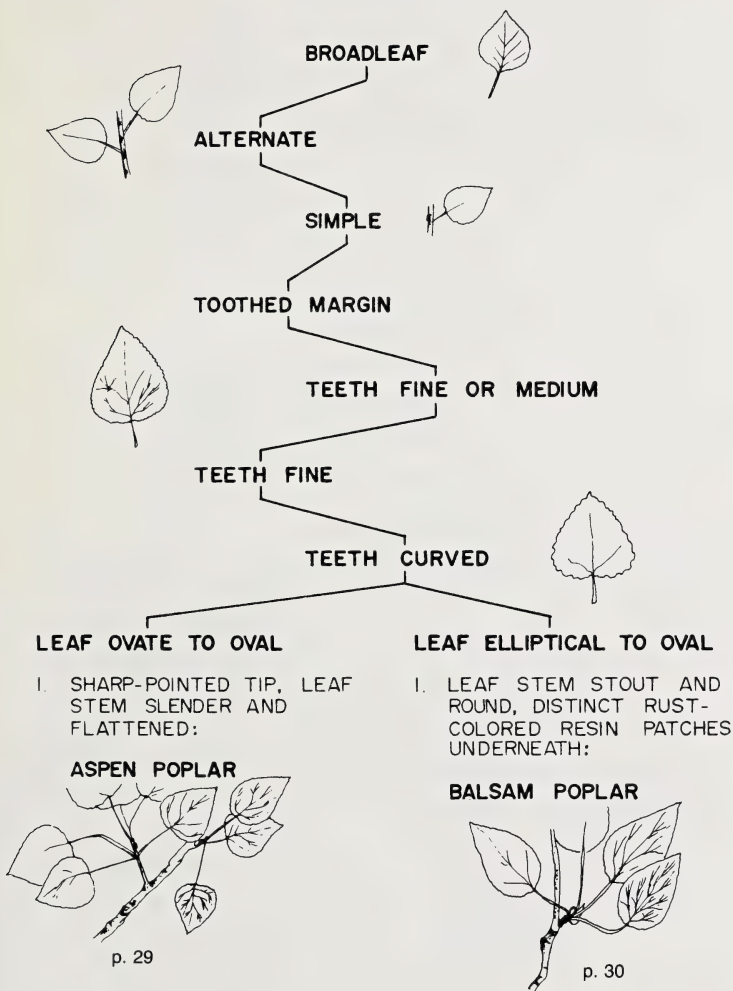 BROADLEAF
ALTERNATE
SIMPLE
TOOTHED MARGIN
TEETH FINE OR MEDIUM
TEETH FINE
TEETH CURVED
LEAF OVATE TO OVAL
I. SHARP-POINTED TIP, LEAF
STEM SLENDER AND
FLATTENED:
ASPEN POPLAR
p. 29
LEAF ELLIPTICAL TO OVAL
I. LEAF STEM STOUT AND
ROUND, DISTINCT RUST-
COLORED RESIN PATCHES
UNDERNEATH:
BALSAM POPLAR
p. 30